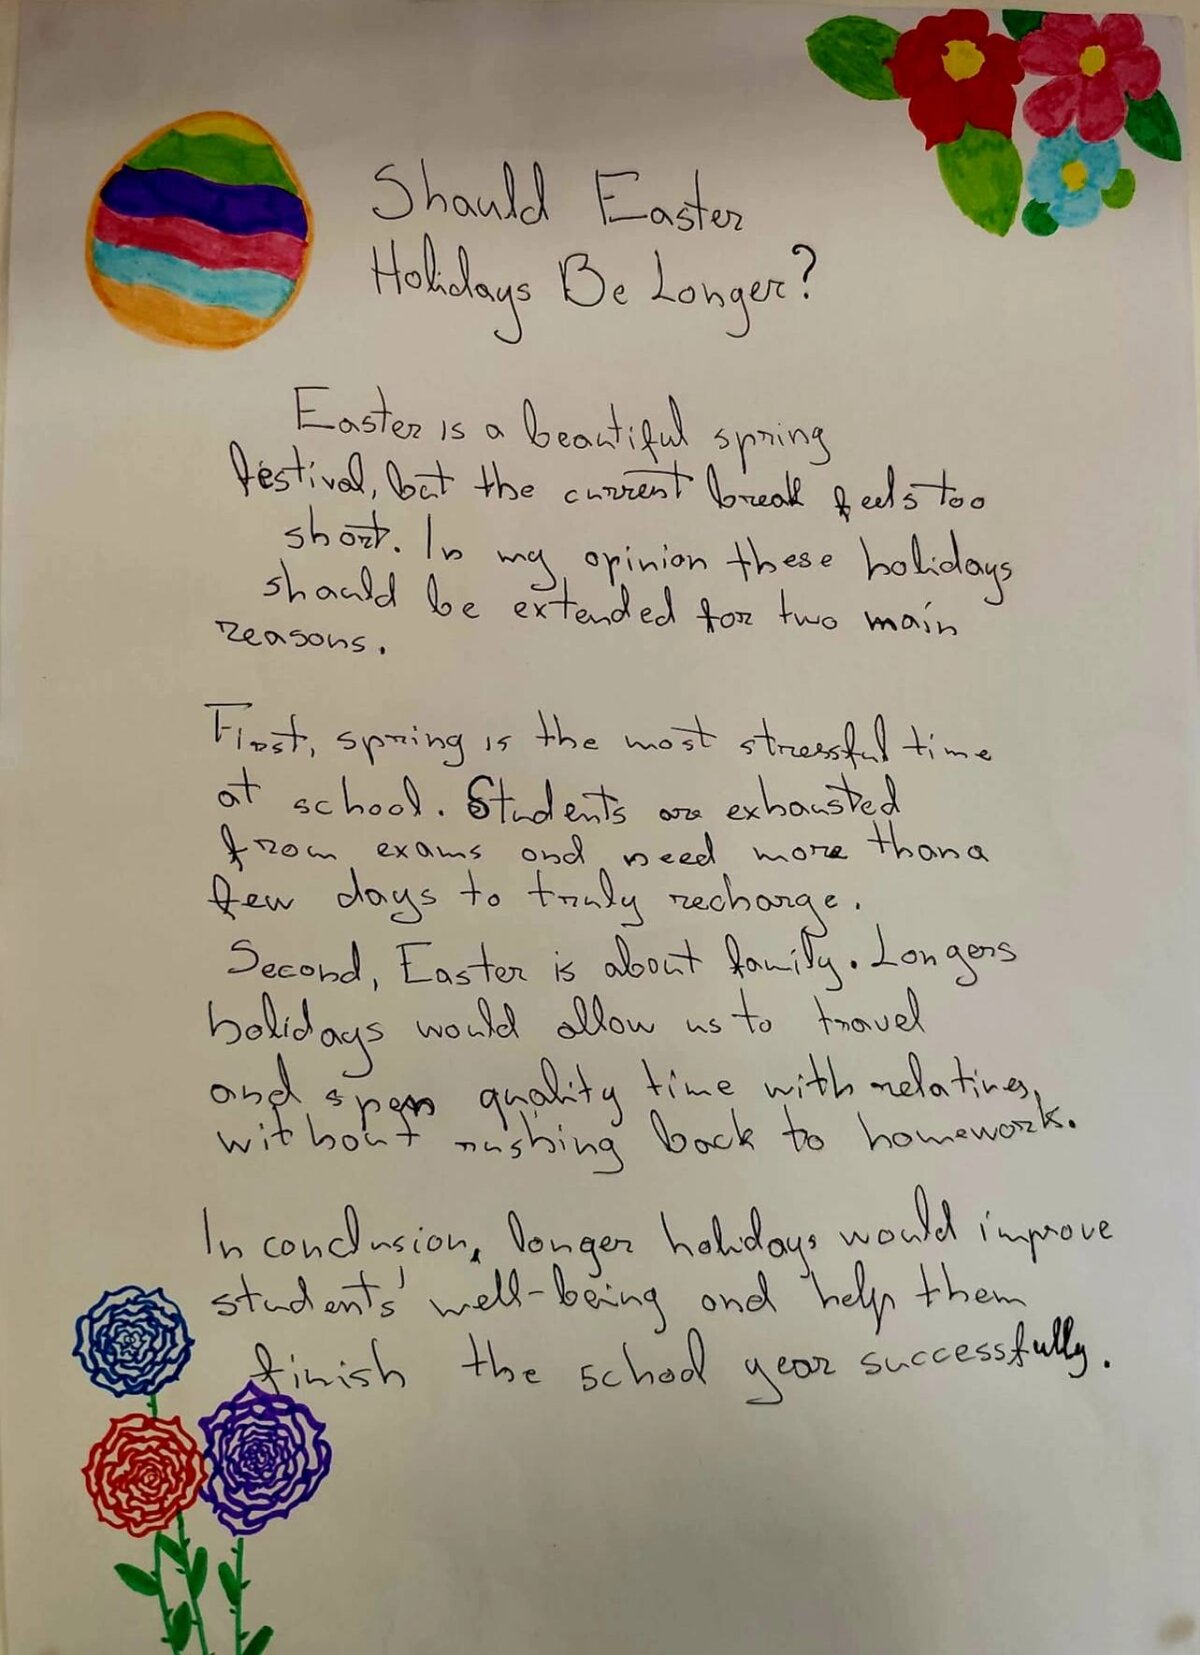 Should Easter
Holidays Be Longer?
Easter is a beautiful spring
festival, but the current break feels too
short. In my opinion these holidays
should be extended for two main
reasons.
First, spring is the most stressful time
at school. Students are exhausted
from exams and need more than a
few days to truly recharge.
Second, Easter is about family. Longers
holidays would allow us to travel
and spen quality time with relatives,
without rushing back to homework.
In conclusion, longer holidays would improve
students' well-being and help them
finish the school year successfully.